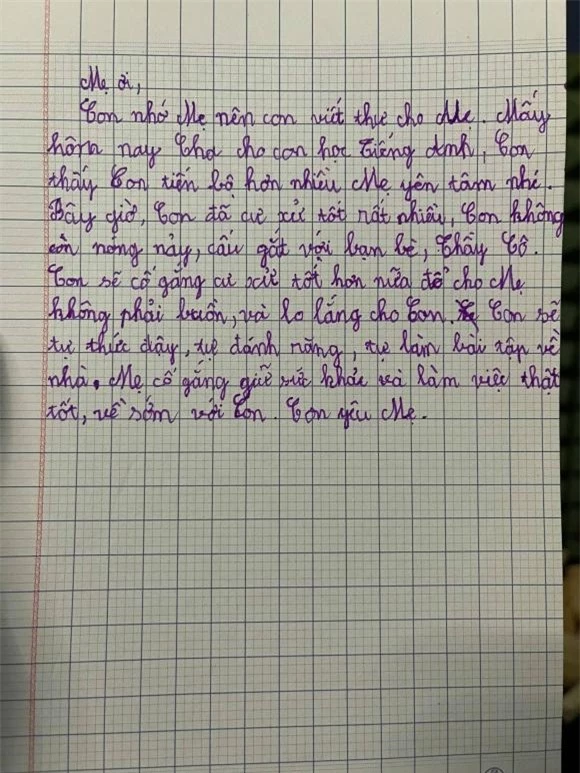 Mẹ ơi,
Con nhớ Mẹ nên con viết thư cho Mẹ. Mấy
hôm nay Cha cho con học Tiếng Anh, Con
thấy Con tiến bộ hơn nhiều Mẹ yên tâm nhé.
Bây giờ, Con đã cư xử tốt rất nhiều, Con không
còn nóng nảy, cáu gắt với bạn bè, Thầy Cô.
Con sẽ cố gắng cư xử tốt hơn nữa để cho Mẹ
không phải buồn, và lo lắng cho Con. Con sẽ
tự thức dậy, tự đánh răng, tự làm bài tập về
nhà. Mẹ cố gắng giữ sức khỏe và làm việc thật
tốt, về sớm với Con. Con yêu Mẹ.